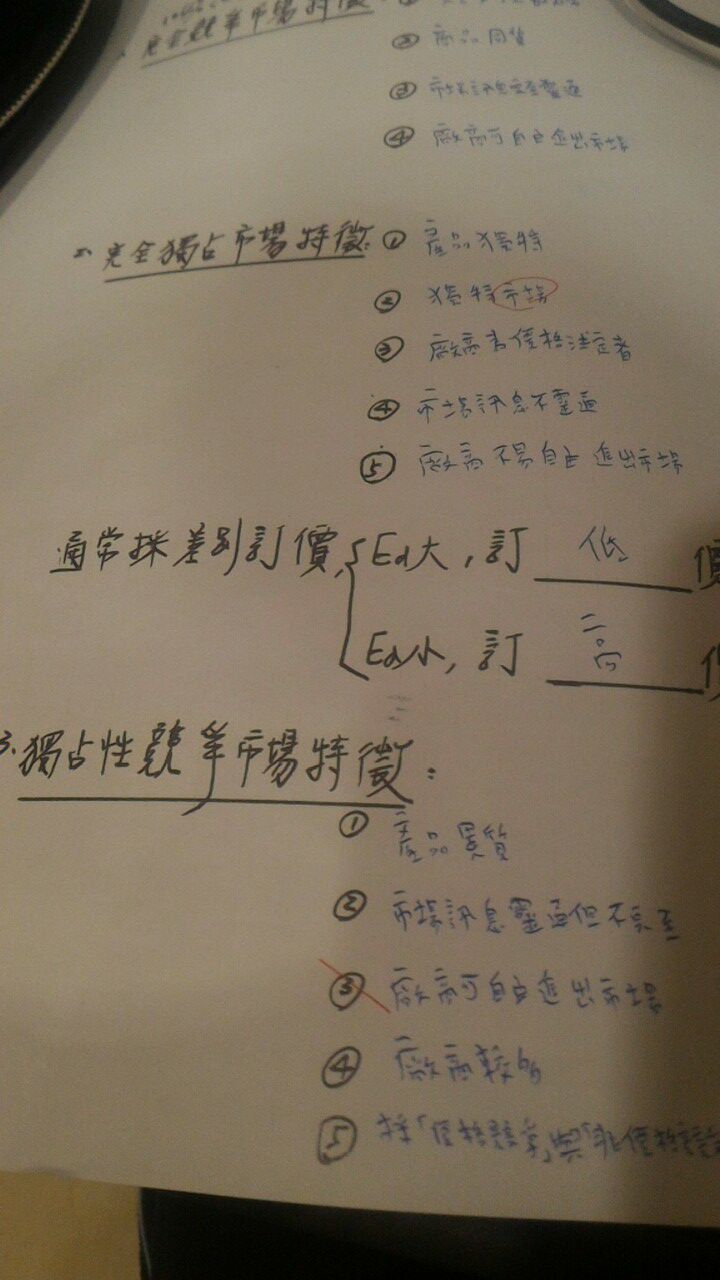 完全競爭市場特徵
② 商品同質
③ 市場訊息完全靈通
④ 廠商可自由進出市場
2. 完全獨占市場特徵: ① 產品獨特
② 獨特市場
③ 廠商為價格決定者
④ 市場訊息不靈通
⑤ 廠商不易自由進出市場
通常採差別訂價, Ed大, 訂 低 價
Ed小, 訂 高
3. 獨占性競爭市場特徵:
① 產品異質
② 市場訊息靈通但不完全
③ 廠商可自由進出市場
④ 廠商較多
⑤ 採「價格競爭」與「非價格競爭